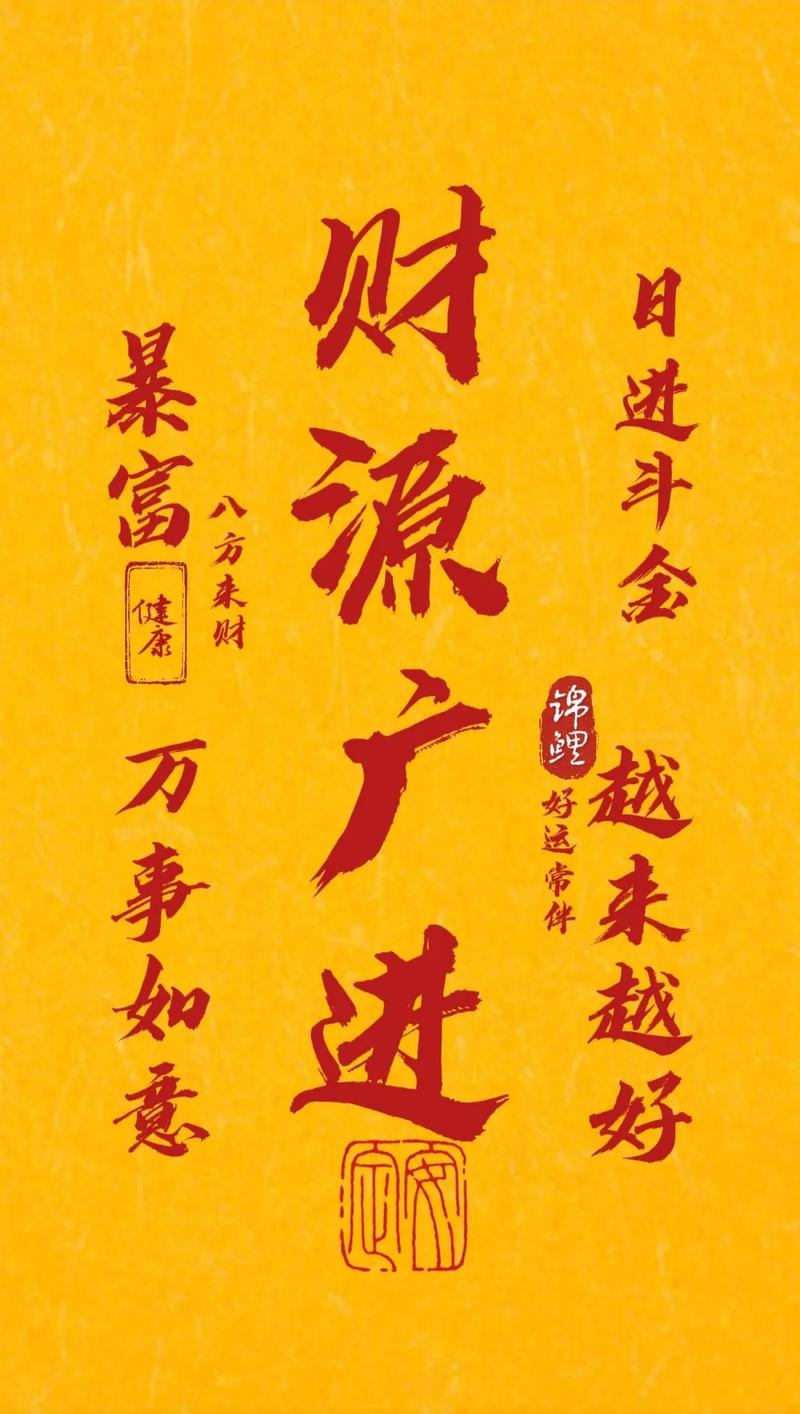 日进斗金
越来越好
锦鲤
好运常伴
财源广进
安定
八方来财
暴富
健康
万事如意